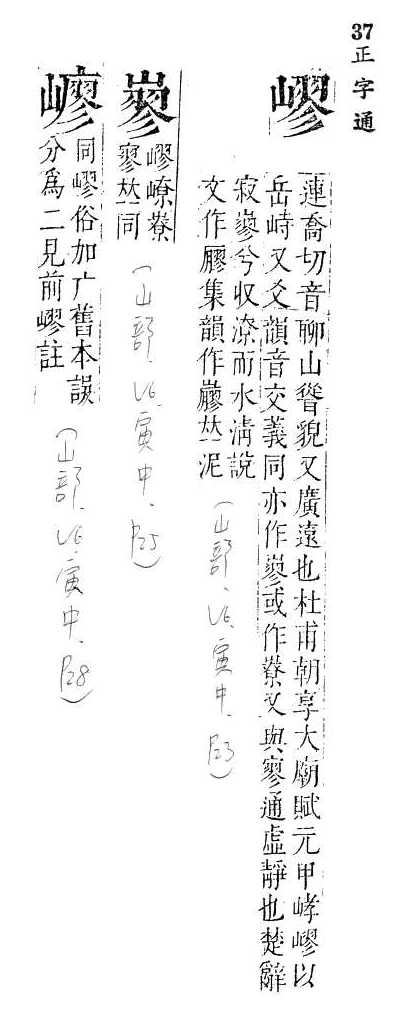 37正字通
嵺
連喬切音聊山聳貌又廣遠也杜甫朝享大廟賦元甲㟉嵺以
岳峙又爻韻音交義同亦作嵺或作嶚又與寥通虛靜也楚辭
寂嵺兮收潦而水淸說
文作廫集韻作𠀤泥
(山部、16、寅中、P23)
嵺嶚
寥𠀤同
(山部、16、寅中、P25)
同嵺俗加广舊本誤
分爲二見前嵺註
(山部、16、寅中、P28)